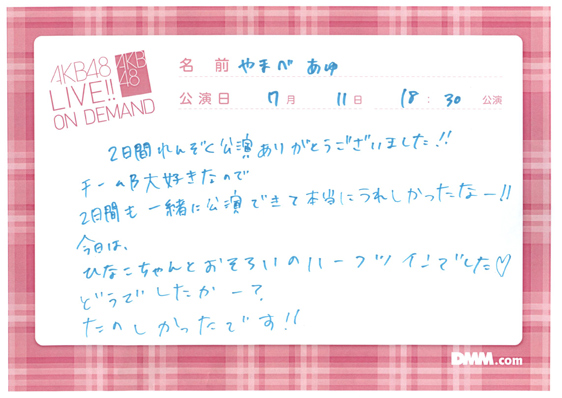 AKB48
LIVE!!
ON DEMAND
AKB
48
名 前 やまべ あゆ
公演日 7月 11日 18:30 公演
2日間れんぞく公演ありがとうございました!!
チームB大好きなので
2日間も一緒に公演できて本当にうれしかったなー!!
今日は、
ひなこちゃんとおそろいのハーフツインでした♡
どうでしたかー?
たのしかったです!!
DMM.com